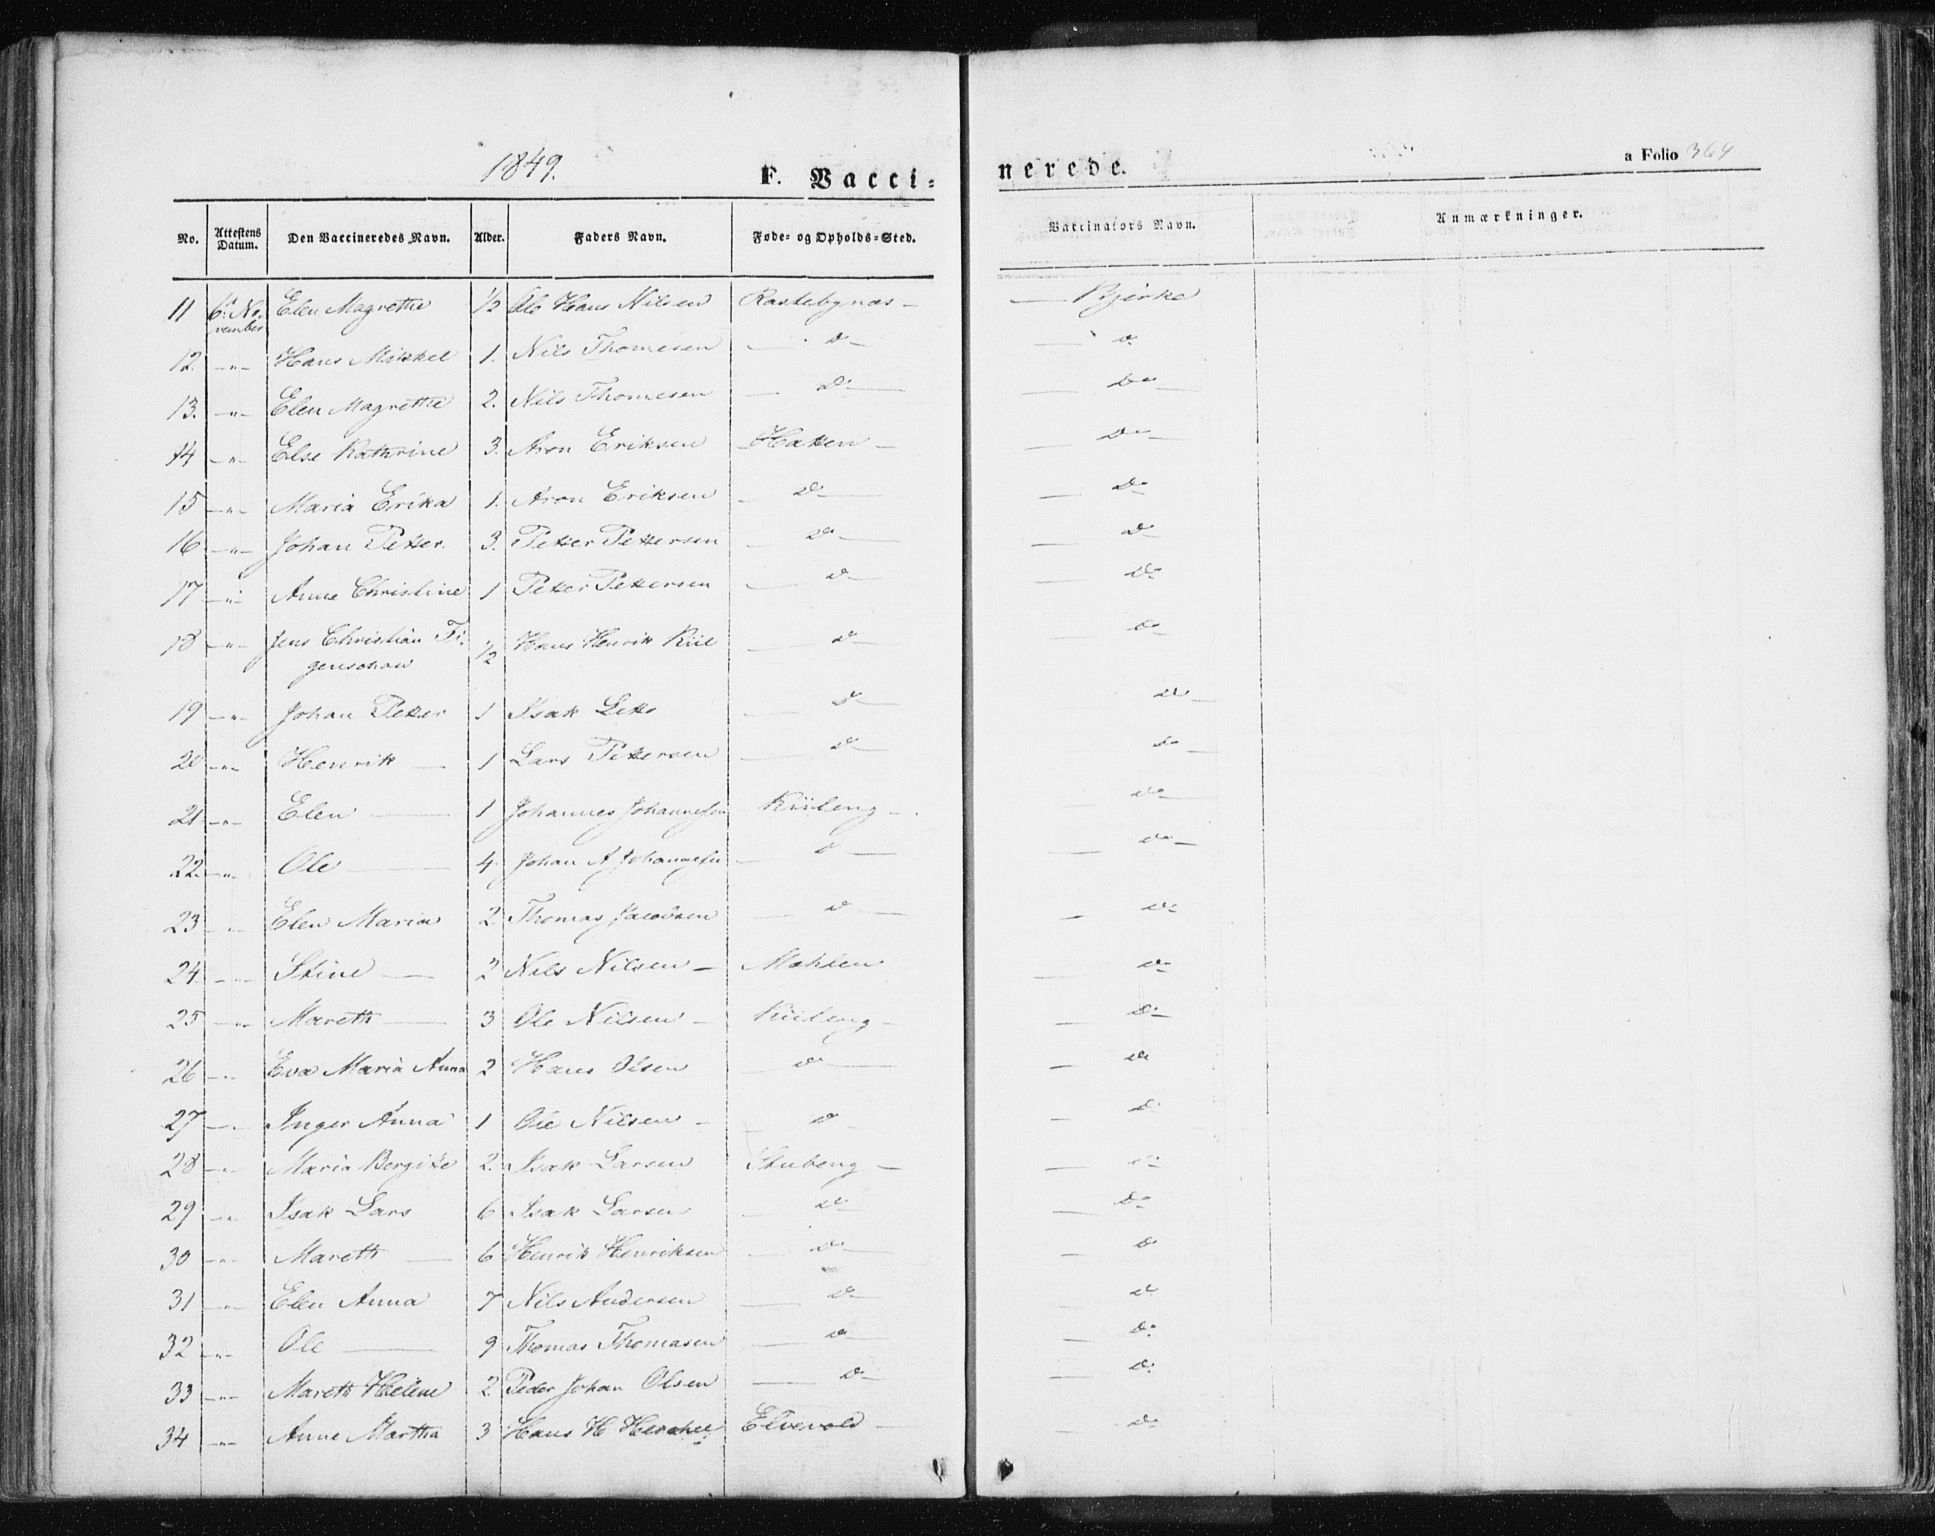 1849.
F. Vacci- nerede. a Folio 364
No. Attestens Datum. Den Vaccineredes Navn. Alder. Faders Navn. Føde- og Opholds-Sted. Vaccinators Navn. Anmærkninger.
11 6te No- vember Elen Magrethe 1/2 Ole Hans Nilsen Rastebynæs - — Bjerke
12. -"- Hans Mikkel 1. Nils Thomesen — do — — do
13. -"- Elen Magrethe 2. Nils Thomesen — do — — do —
14 -"- Else Kathrine 3. Aron Eriksen Hatten - — do —
15 -"- Maria Erika 1. Aron Eriksen — do — — do
16 -"- Johan Petter. 3. Petter Pettersen — do — — do
17 -"- Anne Christine 1 Petter Pettersen — do — — do
18 -"- Jens Christian Fi- 1/2 Hans Henrik Kiil — do — — do
genschau
19 -"- Johan Petter 1 Isak — do — do —
20 -"- Henrik — 1 Lars Pettersen — do — — do —
21 -"- Elen — 1 Johannes Johannesen Kiileng - — do —
22. -"- Ole — 4. Johan A Johannesen — do — — do —
23 -"- Elen Maria 2. Thomas Jacobsen — do — — do
24 -"- Stine — 2 Nils Nilsen - — do
25 -"- Mareth — 3 Ole Nilsen - Kiileng - — do
26 -"- Eva Maria Anna 2 Hans Olsen — do — — do
27 -"- Inger Anna 1 Ole Nilsen - — do — do
28 -"- Maria Bergitte 2. Isak Larsen Stubeng - — do
29 -"- Isak Lars 6 Isak Larsen — do — do
30 -"- Mareth — 6 Henrik Henriksen — do — — do
31 -"- Elen Anna 7 Nils Andersen — do — — do
32 -"- Ole — 9 Thomas Thomasen — do — — do
33 -"- Mareth Helene 2 Peder Johan Olsen — do — — do
34 -"- Anne Martha 3 Hans H Elvevold - — do